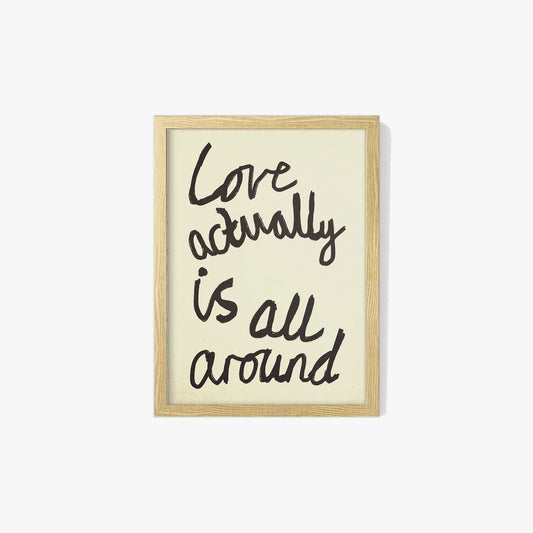 Love
actually
is all
around